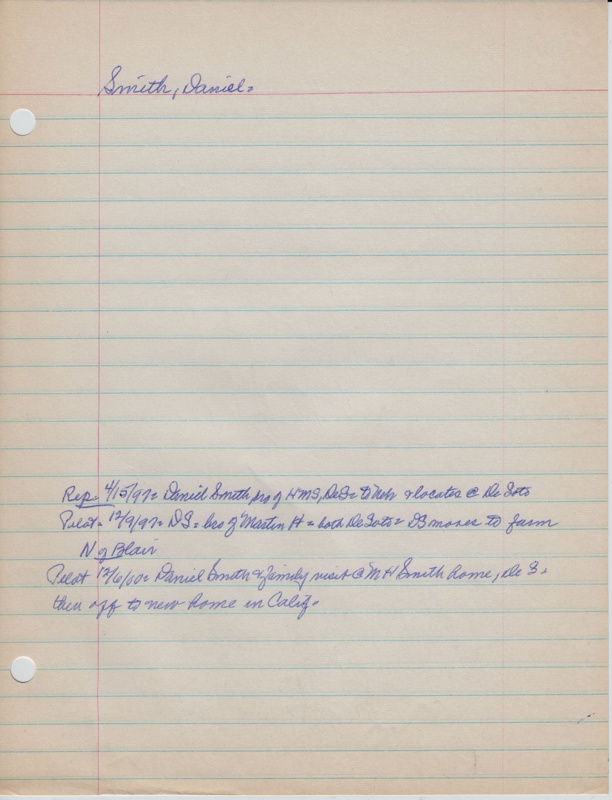 Smith, Daniel =
Rep = 4/15/97 = Daniel Smith, bro of HMS, DeS = to Neb & locates @ De Soto
Pilot = 12/9/97 = DS = bro of Martin H = both De Soto = DS moves to farm
N of Blair
Pilot 12/6/00 = Daniel Smith & family visit @ M H Smith home, De S.
then off to new home in Calif.